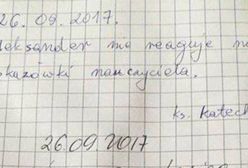 26. 09. 2017.
leksander nie reaguje na
skazówki nauczyciela.
ks. Katech
26.09.2017